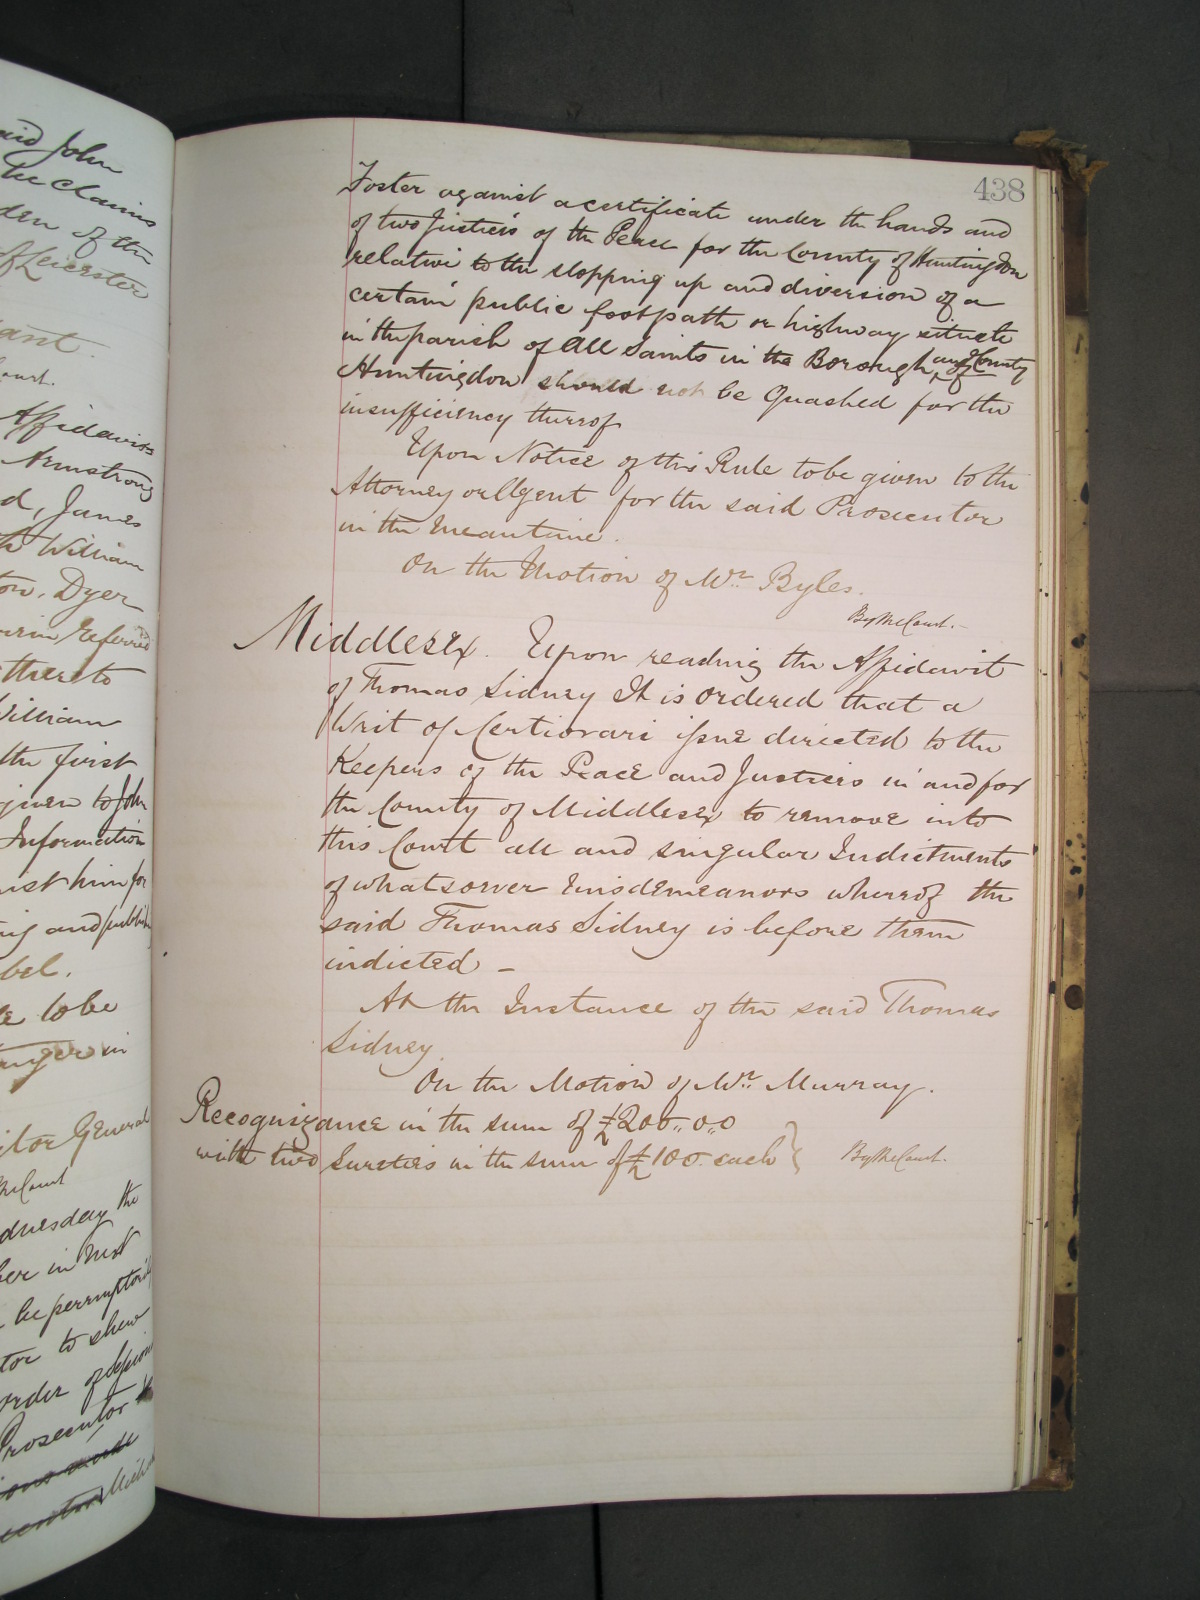 aid John
he claims
den of the
of Leicester
ant.
Court.
Affidavits
Armstrong
d, James
h William
ton, Dyer
erein referred
thereto
William
the first
given to John
Information
nst him for
ng and publish
bel.
e to be
anger in
itor General
the Court
dnesday the
ber in next
be peremptorily
tor to shew
order of
Prosecutor
438
Foster against a certificate under the hands and
of two Justices of the Peace for the County of Huntingdon
relative to the stopping up and diversion of a
certain public footpath or highway situate
in the parish of All Saints in the Borough and County
Huntingdon should not be Quashed for the
insufficiency thereof
Upon Notice of this Rule to be given to the
Attorney or Agent for the said Prosecutor
in the meantime.
On the Motion of Mr. Byles.
By the Court.
Middlesex. Upon reading the Affidavit
of Thomas Sidney It is ordered that a
Writ of Certiorari issue directed to the
Keepers of the Peace and Justices in and for
the County of Middlesex to remove into
this Court all and singular Indictments
of whatsoever misdemeanors whereof the
said Thomas Sidney is before them
indicted –
At the Instance of the said Thomas
Sidney
On the Motion of Mr. Murray.
Recognizance in the sum of £200..0..0
with two Sureties in the sum of £100 each }
By the Court.